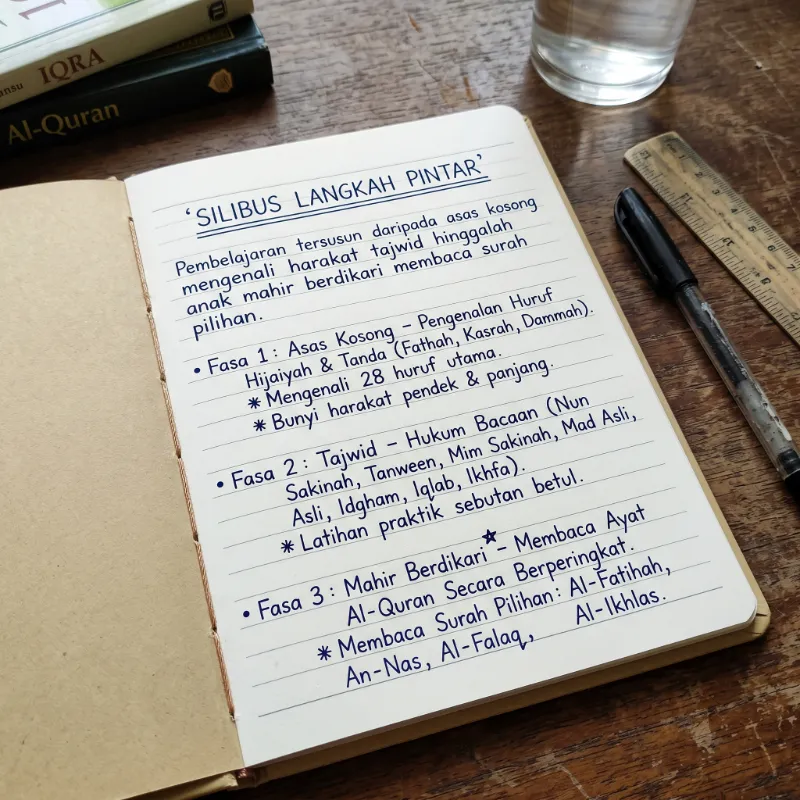 IQRA
Al-Quran
'SILIBUS LANGKAH PINTAR'
Pembelajaran tersusun daripada asas kosong
mengenali harakat tajwid hinggalah
anak mahir berdikari membaca surah
pilihan.
• Fasa 1: Asas Kosong – Pengenalan Huruf
Hijaiyah & Tanda (Fathah, Kasrah, Dammah).
* Mengenali 28 huruf utama.
* Bunyi harakat pendek & panjang.
• Fasa 2: Tajwid – Hukum Bacaan (Nun
Sakinah, Tanween, Mim Sakinah, Mad Asli,
Asli, Idgham, Iqlab, Ikhfa).
* Latihan praktik sebutan betul.
• Fasa 3: Mahir Berdikari★ – Membaca Ayat
Al-Quran Secara Berperingkat.
* Membaca Surah Pilihan: Al-Fatihah,
An-Nas, Al-Falaq, Al-Ikhlas.